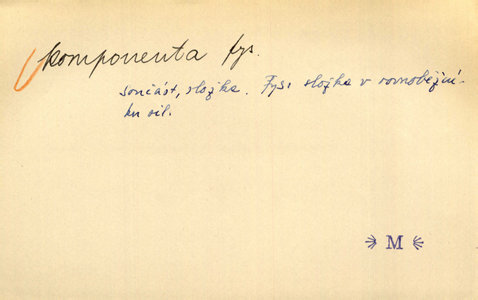 komponenta fys.
součást, složka. Fys: složka v rovnoběžní-
ku sil.
M